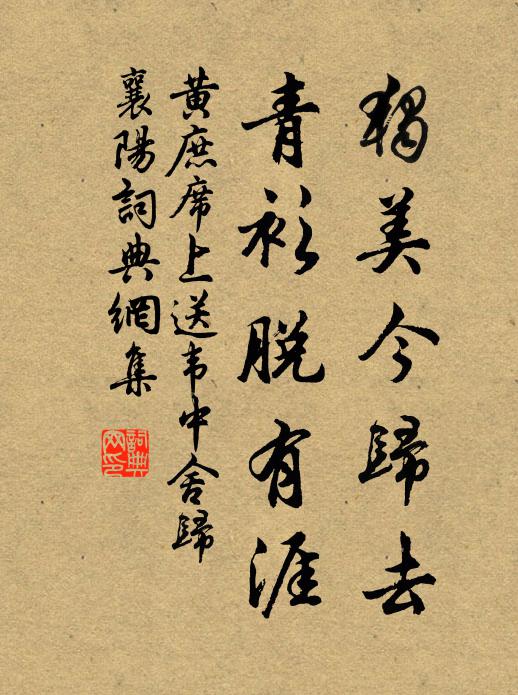 獨美今歸去
青衫脫有涯
黃庶席上送韦中舍歸
襄陽詞典網集
詞典
网印